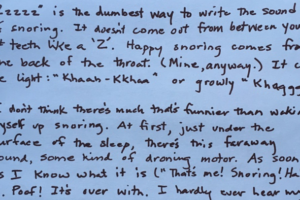 zzzzz" is the dumbest way to write the sound
snoring. It doesn't come out from between you
t teeth like a 'Z'. Happy snoring comes from
e back of the throat. (Mine, anyway.) It c
e light: "Khaah-Kkhaa" or growly "Khaggg
don't think there's much that's funnier than wakin
yself up snoring. At first, just under the
urface of the sleep, there's this faraway
ound, some kind of droning motor. As soon
s I know what it is ("That's me! Snoring! Ha
. Poof! It's over with. I hardly ever hear m